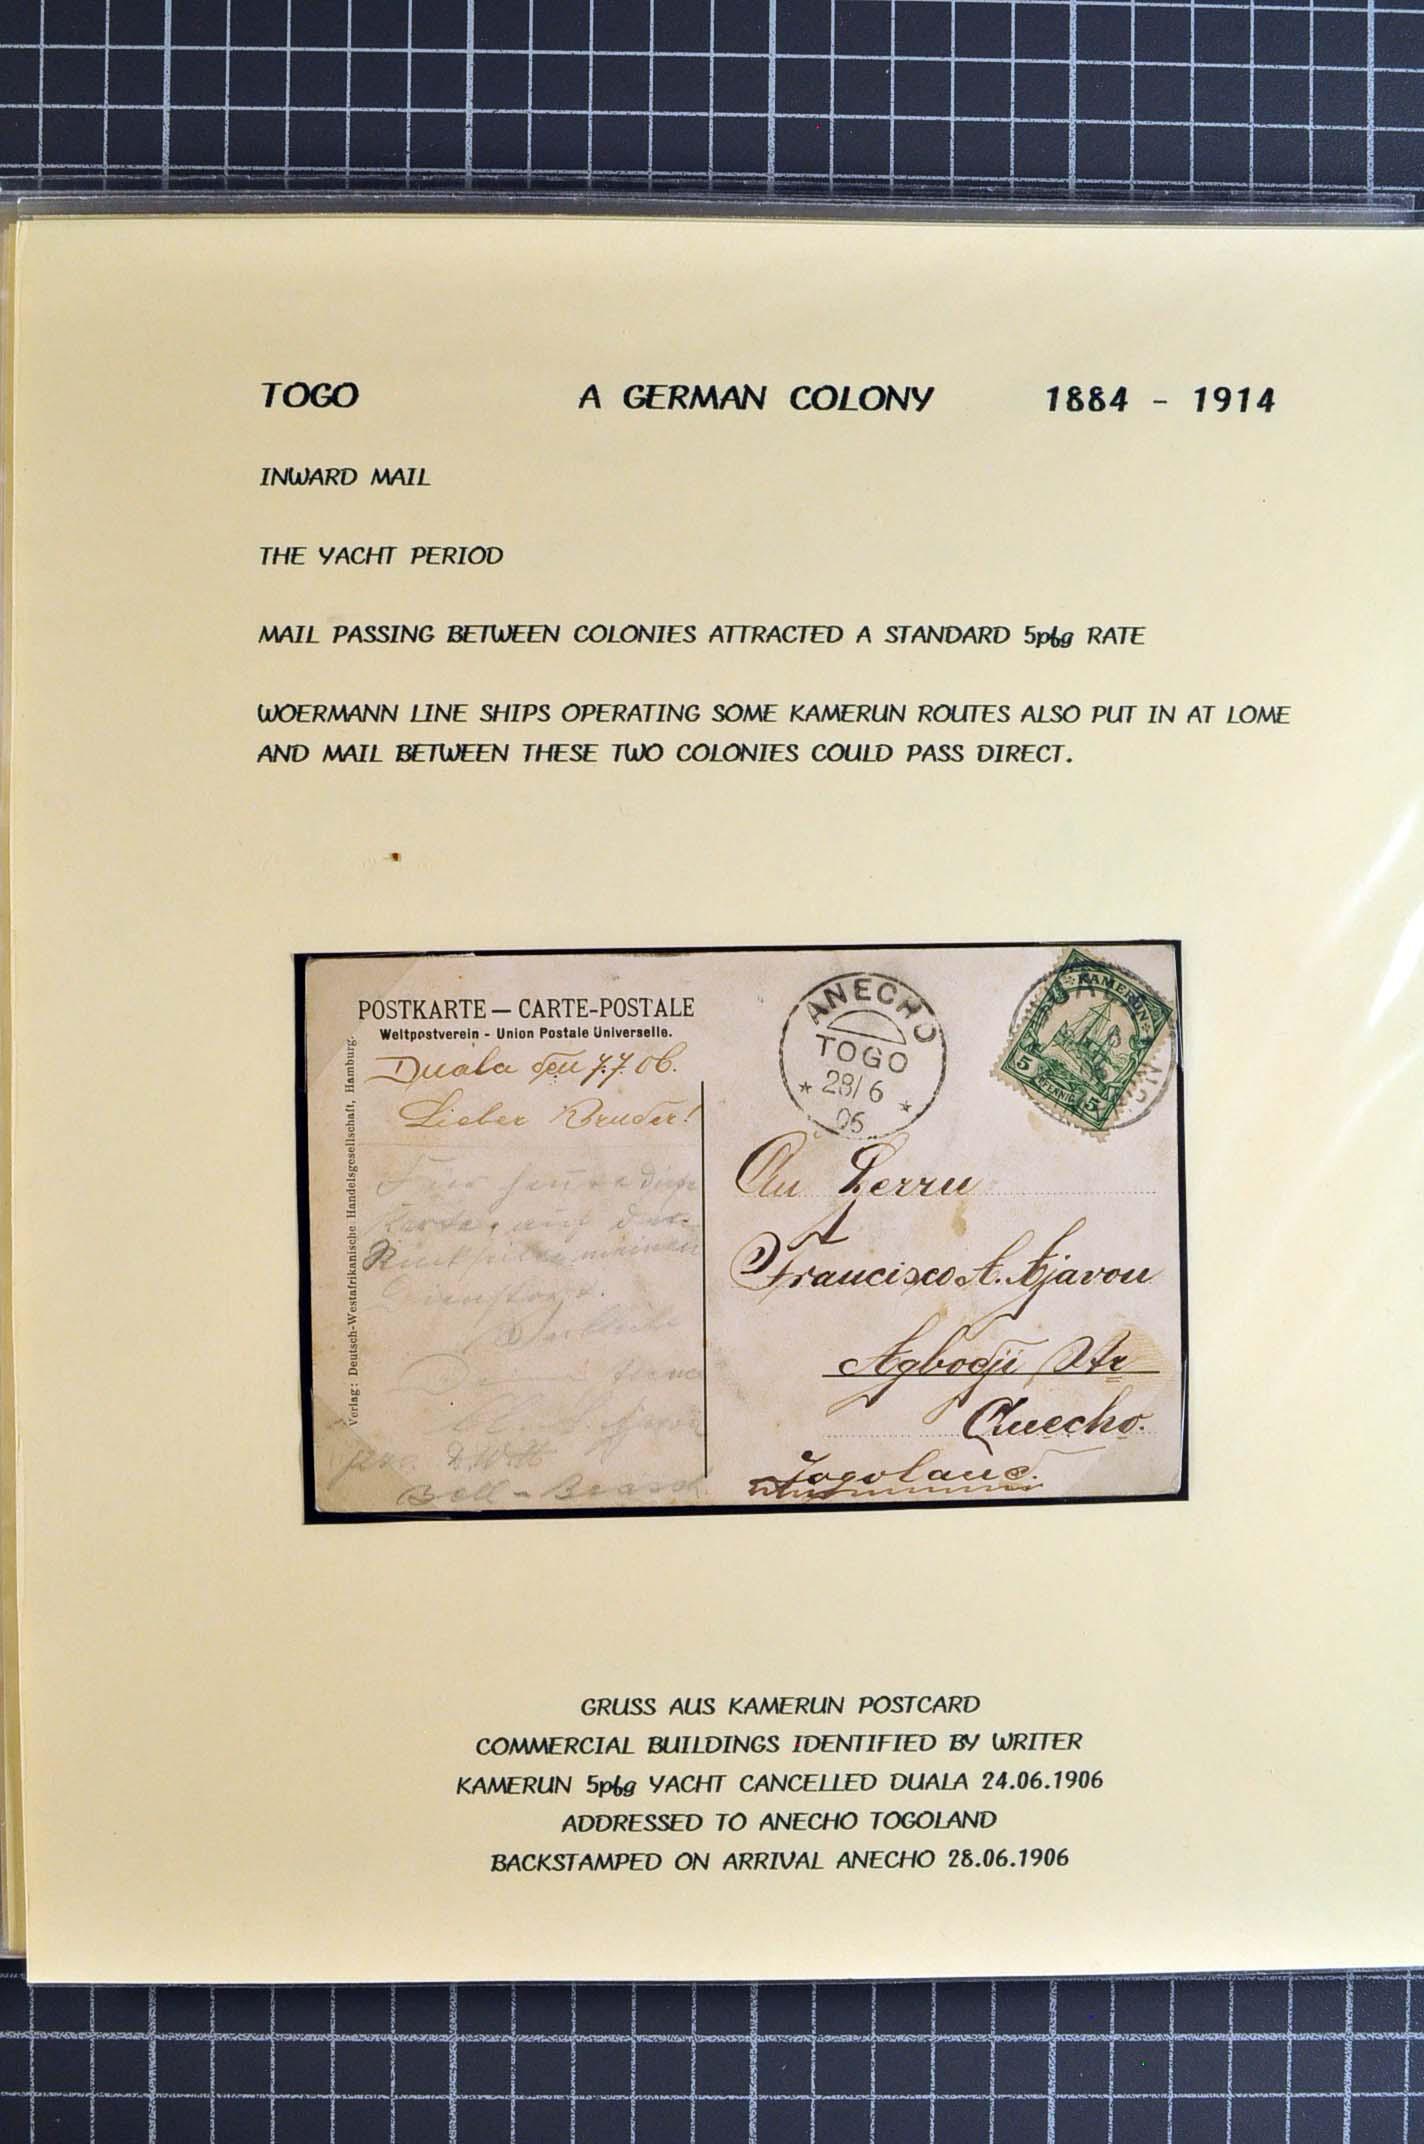 TOGO A GERMAN COLONY 1884 - 1914
INWARD MAIL
THE YACHT PERIOD
MAIL PASSING BETWEEN COLONIES ATTRACTED A STANDARD 5pfg RATE
WOERMANN LINE SHIPS OPERATING SOME KAMERUN ROUTES ALSO PUT IN AT LOME
AND MAIL BETWEEN THESE TWO COLONIES COULD PASS DIRECT.
POSTKARTE — CARTE-POSTALE
Weltpostverein - Union Postale Universelle.
Verlag: Deutsch-Westafrikanische Handelsgesellschaft, Hamburg.
Duala den 7.7.06.
Lieber Bruder!
Karte, auf der
Rückseite meinen
Bell -
ANECHO
TOGO
* 28/6 *
06
KAMERUN
5 PFENNIG 5
An Herrn
Francisco A. Ajavon
Agbodji Str
Anecho.
Togoland.
GRUSS AUS KAMERUN POSTCARD
COMMERCIAL BUILDINGS IDENTIFIED BY WRITER
KAMERUN 5pfg YACHT CANCELLED DUALA 24.06.1906
ADDRESSED TO ANECHO TOGOLAND
BACKSTAMPED ON ARRIVAL ANECHO 28.06.1906